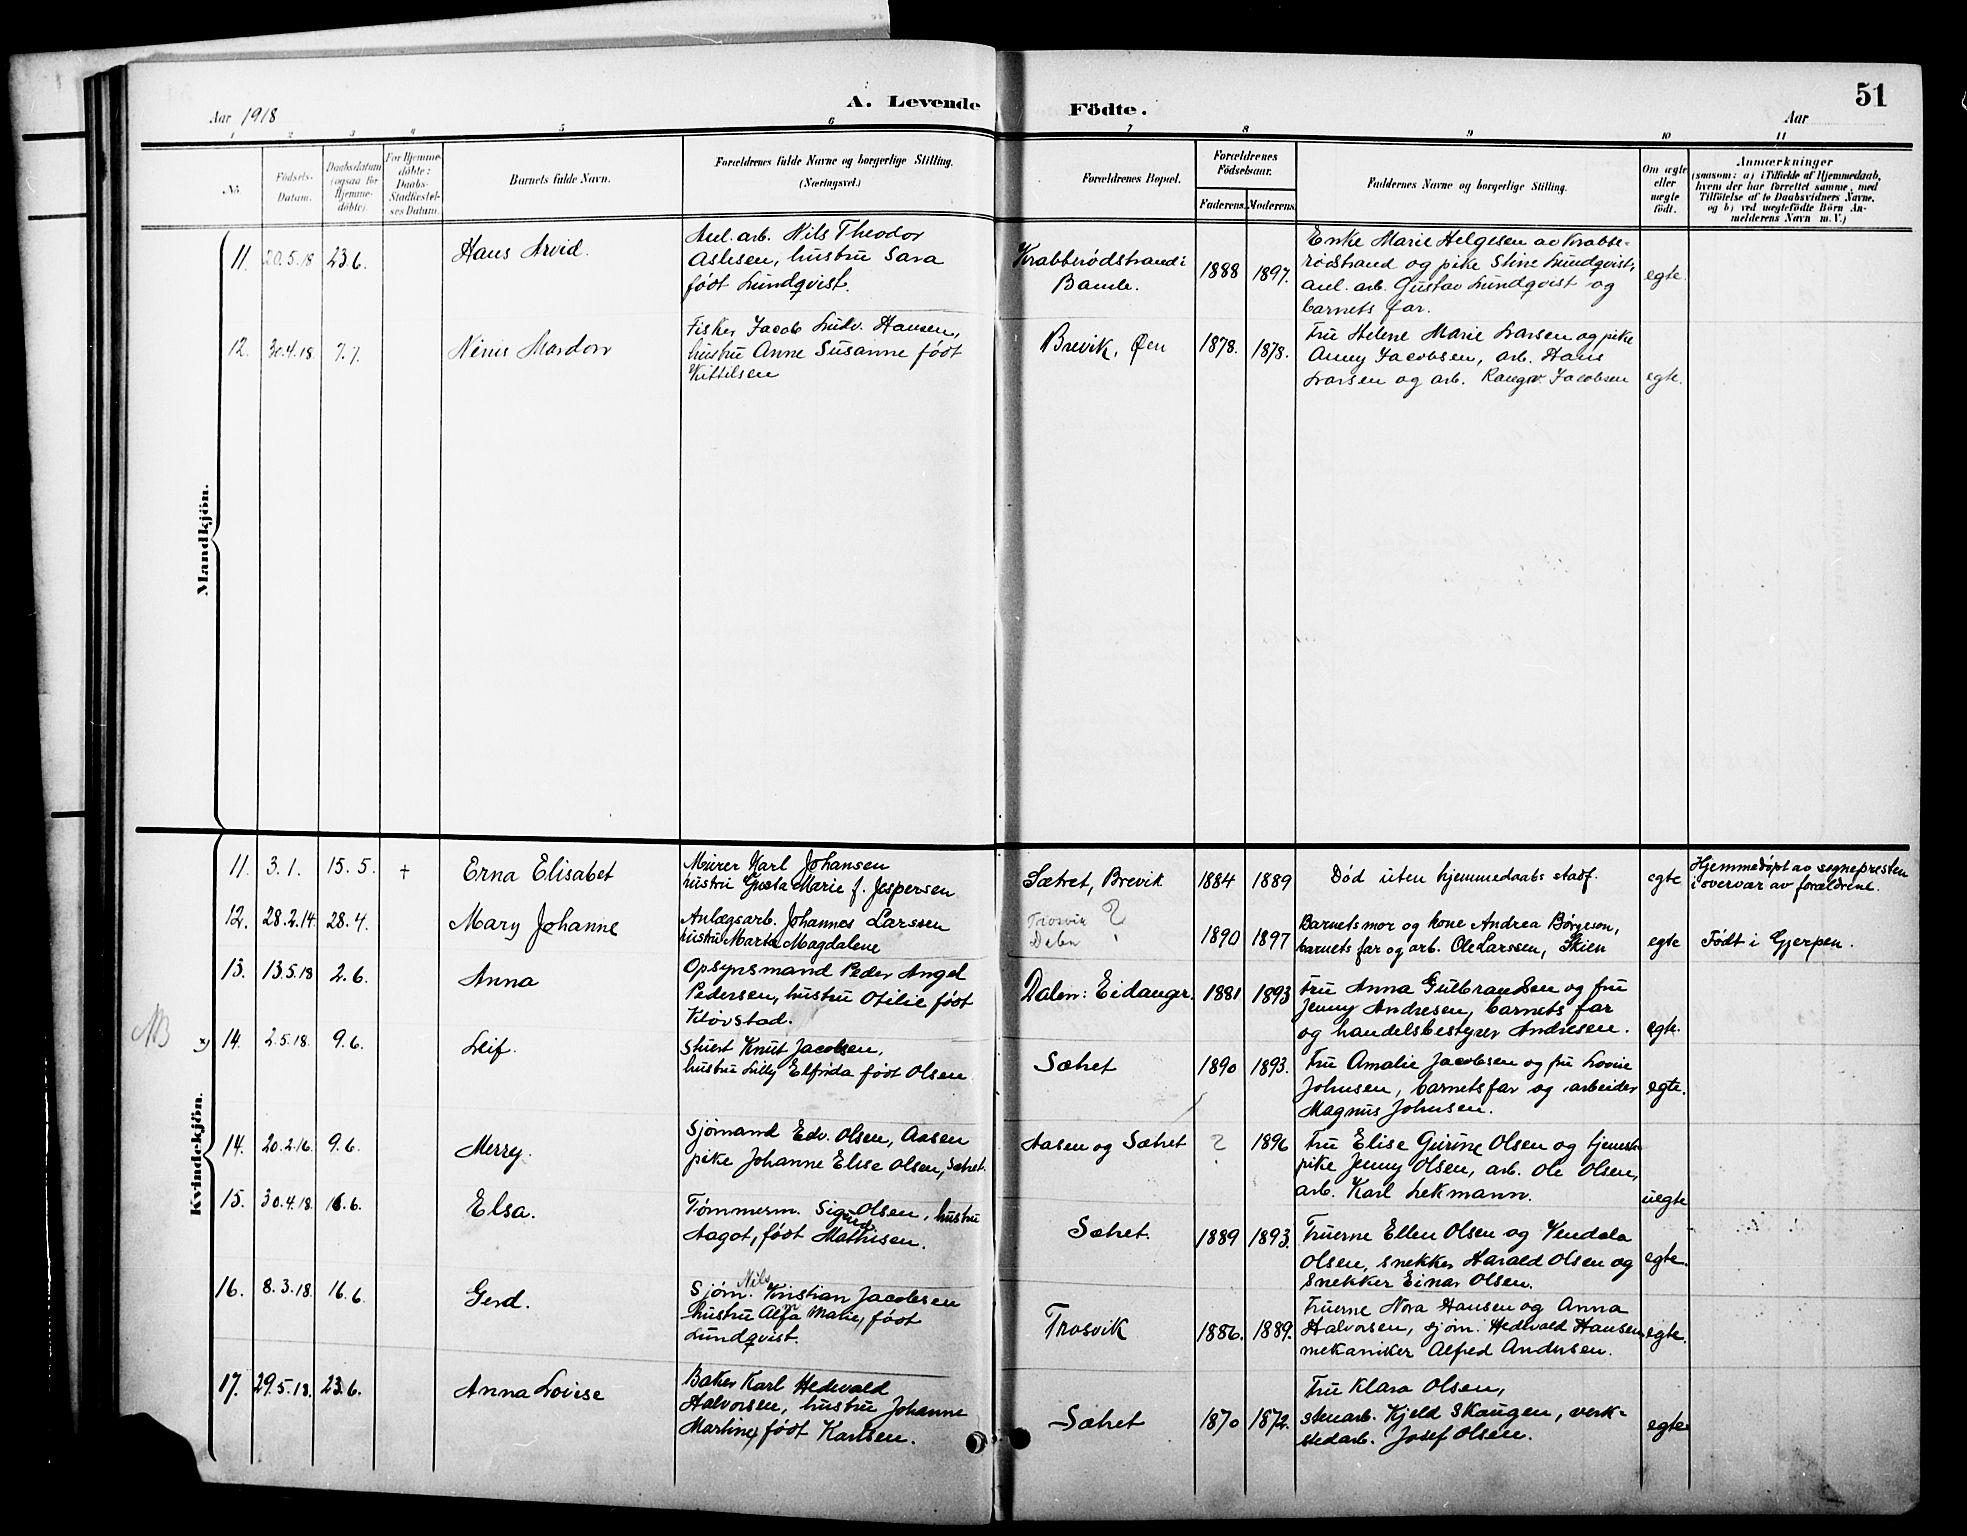 51
A. Levende Födte.
Aar 1918
Aar
1 2 3 4 5 6 7 8 9 10 11
No.
Födsels-Datum.
Daabsdatum (ogsaa for Hjemme-döbte).
For Hjemme-döbte: Daabs-Stadfæstel-ses Datum.
Barnets fulde Navn.
Forældrenes fulde Navne og borgerlige Stilling. (Næringsvei.)
Forældrenes Bopæl.
Forældrenes Födselsaar.
Faderens. Moderens.
Faddernes Navne og borgerlige Stilling.
Om ægte eller uægte födt.
Anmærkninger
(saasom: a) i Tilfælde af Hjemmedaab,
hvem der har forrettet samme, med
Tilföielse af to Daabsvidners Navne,
og b) ved uægtefödte Börn An-
melderens Navn m. V.)
Mandkjön.
11. 20.5.18 23.6. Hans Arvid.
Anl. arb. Nils Theodor
Aslesen, hustru Sara
født Lundqvist.
Krabberødstrand i
Bamle.
1888 1897.
Enke Marie Helgesen av Krabbe-
rødstrand og pike Stine Lundqvist,
anl. arb. Gustav Lundqvist og
barnets far.
egte.
12. 30.4.18 7.7.
Fisker Jacob Ludv. Hansen,
hustru Anne Susanne født
Kittilsen
Brevik, Øen
1878. 1878.
Fru Helene Marie Larsen og pike
Anny Jacobsen, arb. Hans
Larsen og arb. Rangv. Jacobsen
egte.
Kvindekjön.
11. 3.1. 15.5. + Erna Elisabet
Murer Karl Johansen
hustru Gusta Marie f. Jespersen
Sætret, Brevik
1884 1889
Død uten hjemmedaabs stadf.
egte
Hjemmedøpt av sognepresten
i overvær av forældrene.
12. 28.2.14. 28.4. Mary Johanne
Anlægsarb. Johannes Larssen
hustru Marta Magdalene
Trosvik ?
1890 1897
Barnets mor og kone Andrea Børgesen,
barnets far og arb. Ole Larssen, Skien
egte
Født i Gjerpen.
13. 13.5.18 2.6. Anna
Opsynsmand Peder Angel
Pedersen, hustru Otilie født
Kløvstad.
Dalen: Eidanger.
1881 1893
Fru Anna Gulbrandsen og fru
Jenny Andresen, barnets far
og handelsbestyrer Andresen.
egte.
NB
x) 14. 2.5.18. 9.6. Leif.
Stuert Knut Jacobsen,
hustru Lilly Elfrida født Olsen
Sætret
1890 1893.
Fru Amalie Jacobsen og fru Lovise
Johnsen, barnets far og arbeider
Magnus Johnsen.
egte.
14. 20.2.16. 9.6. Merry.
Sjømand Edv. Olsen, Aasen
pike Johanne Elise Olsen, Sætret.
Aasen og Sætret
? 1896
Fru Elise Gurine Olsen og tjeneste-
pike Jenny Olsen, arb. Ole Olsen,
arb. Karl Lekmann.
uegte
15. 30.4.18. 16.6. Elsa.
Tømmerm. Sigurd Olsen, hustru
Aagot, født Mathisen.
Sætret.
1889 1893.
Fruerne Ellen Olsen og Vendala
Olsen, snekker Harald Olsen og
Snekker Einar Olsen.
egte.
16. 8.3.18. 16.6. Gerd.
Sjøm. Nils Kristian Jacobsen
hustru Alfa Marie, født
Lundqvist.
Trosvik
1886. 1889.
Fruerne Nora Hansen og Anna
Halvorsen, sjøm. Hedevald Hansen,
mekaniker Alfred Andersen.
egte.
17. 29.5.18. 23.6. Anna Lovise
Baker Karl Hedevald
Halvorsen, hustru Johanne
Martine, født Karlsen.
Sætret
1870 1872.
Fru Klara Olsen,
stenarb. Kjeld Skaugen, verk-
stedarb. Josef Olsen.
egte